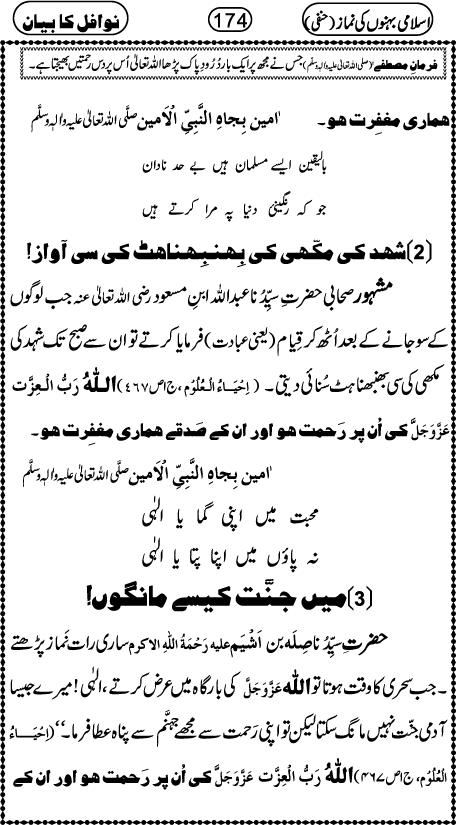 اسلامی بہنوں کی نماز (حنفی) 174 نوافل کا بیان
فرمانِ مصطفےٰ (صلی اللہ تعالیٰ علیہ والہٖ وسلّم) جس نے مجھ پر ایک بار دُرُودِ پاک پڑھا اللہ تعالیٰ اُس پر دس رحمتیں بھیجتا ہے۔
ہماری مغفِرت ہو۔ اٰمین بِجاہِ النَّبِیِّ الْاَمین صلَّی اللہ تعالیٰ علیہ واٰلہٖ وسلَّم
بالیقین ایسے مسلمان ہیں بے حد نادان
جو کہ رنگینیٔ دنیا پہ مرا کرتے ہیں
(2) شہد کی مکّھی کی بِھنبِھناھٹ کی سی آواز!
مشہور صحابی حضرتِ سیِّدُنا عبداللہ ابنِ مسعود رضی اللہ تعالیٰ عنہ جب لوگوں
کے سو جانے کے بعد اُٹھ کر قِیام (یعنی عبادت) فرمایا کرتے تو ان سے صبح تک شہد کی
مکھی کی سی بھنبھناہٹ سُنائی دیتی۔ (اِحْیَاءُ الْعُلُوْم، ج۱ص۴۶۷) اللہُ رَبُّ الْعِزَّت
عَزَّوَجَلَّ کی اُن پر رَحمت ہو اور ان کے صَدقے ہماری مغفِرت ہو۔
اٰمین بِجاہِ النَّبِیِّ الْاَمین صلَّی اللہ تعالیٰ علیہ واٰلہٖ وسلَّم
محبت میں اپنی گما یا الٰہی
نہ پاؤں میں اپنا پتا یا الٰہی
(3) میں جنَّت کیسے مانگوں!
حضرتِ سیِّدُنا صِلَہ بن اَشْیَم علیہ رَحْمَۃُ اللہِ الاکرم ساری رات نَماز پڑھتے
۔ جب سحَری کا وقت ہوتا تو اللہ عَزَّوَجَلَّ کی بارگاہ میں عرض کرتے، الٰہی! میرے جیسا
آدمی جنّت نہیں مانگ سکتا لیکن تو اپنی رَحمت سے مجھے جہنَّم سے پناہ عطا فرما۔‘‘ (اِحْیَاءُ
الْعُلُوْم، ج۱ص۴۶۷) اللہُ رَبُّ الْعِزَّت عَزَّوَجَلَّ کی اُن پر رَحمت ہو اور ان کے